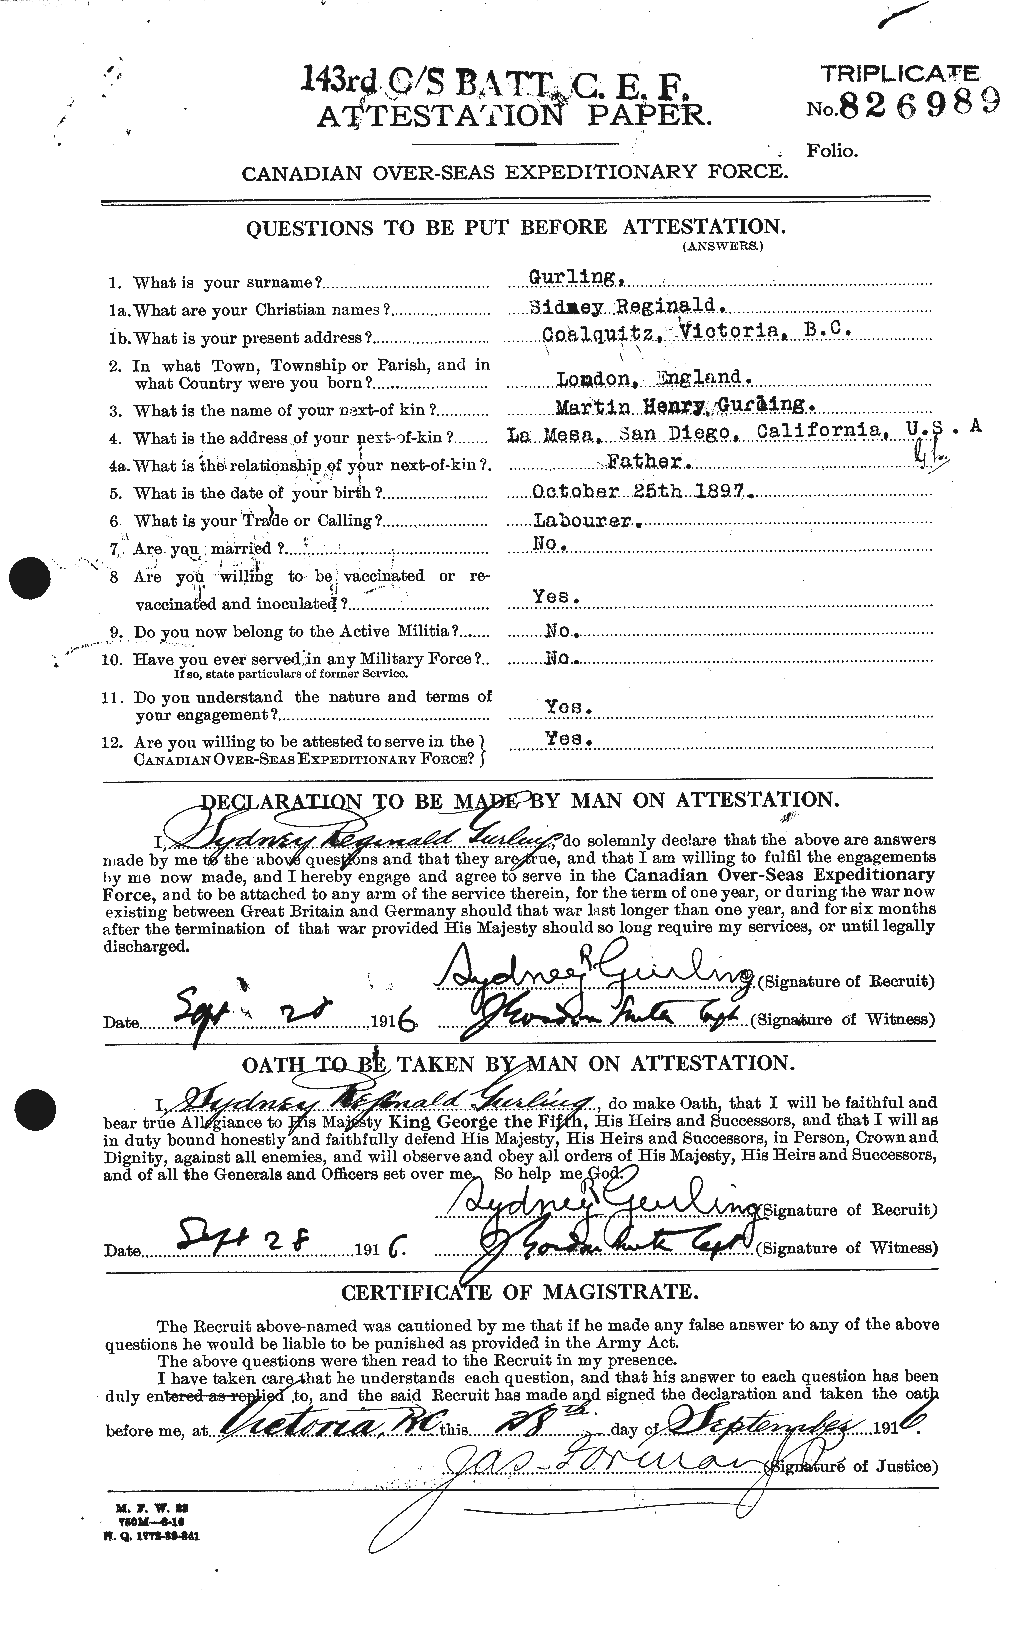 143rd O/S BATT. C. E. F.
TRIPLICATE
ATTESTATION PAPER.
No. 826989
Folio.
CANADIAN OVER-SEAS EXPEDITIONARY FORCE.
QUESTIONS TO BE PUT BEFORE ATTESTATION.
(ANSWERS)
1. What is your surname? Gurling,
1a. What are your Christian names? Sidney Reginald.
1b. What is your present address? Coalquitz, Victoria, B.C.
2. In what Town, Township or Parish, and in
what Country were you born? London, England.
3. What is the name of your next-of kin? Martin Henry Gurling.
4. What is the address of your next-of-kin? La Mesa, San Diego, California, U.S.A
4a. What is the relationship of your next-of-kin? Father.
5. What is the date of your birth? October 25th 1897.
6. What is your Trade or Calling? Labourer.
7. Are you married? No.
8 Are you willing to be vaccinated or re-
vaccinated and inoculated? Yes.
9. Do you now belong to the Active Militia? No.
10. Have you ever served in any Military Force? No.
If so, state particulars of former Service.
11. Do you understand the nature and terms of
your engagement? Yes.
12. Are you willing to be attested to serve in the } Yes.
CANADIAN OVER-SEAS EXPEDITIONARY FORCE? }
DECLARATION TO BE MADE BY MAN ON ATTESTATION.
I, Sydney Reginald Gurling, do solemnly declare that the above are answers
made by me to the above questions and that they are true, and that I am willing to fulfil the engagements
by me now made, and I hereby engage and agree to serve in the Canadian Over-Seas Expeditionary
Force, and to be attached to any arm of the service therein, for the term of one year, or during the war now
existing between Great Britain and Germany should that war last longer than one year, and for six months
after the termination of that war provided His Majesty should so long require my services, or until legally
discharged.
Sydney R Gurling (Signature of Recruit)
Date Sept 28 1916. J Gordon Capt (Signature of Witness)
OATH TO BE TAKEN BY MAN ON ATTESTATION.
I, Sydney Reginald Gurling, do make Oath, that I will be faithful and
bear true Allegiance to His Majesty King George the Fifth, His Heirs and Successors, and that I will as
in duty bound honestly and faithfully defend His Majesty, His Heirs and Successors, in Person, Crown and
Dignity, against all enemies, and will observe and obey all orders of His Majesty, His Heirs and Successors,
and of all the Generals and Officers set over me. So help me God.
Sydney R Gurling (Signature of Recruit)
Date Sept 28 1916. J Gordon Capt (Signature of Witness)
CERTIFICATE OF MAGISTRATE.
The Recruit above-named was cautioned by me that if he made any false answer to any of the above
questions he would be liable to be punished as provided in the Army Act.
The above questions were then read to the Recruit in my presence.
I have taken care that he understands each question, and that his answer to each question has been
duly entered as replied to, and the said Recruit has made and signed the declaration and taken the oath
before me, at Victoria, BC this 28th day of September 1916.
Jas Forman (Signature of Justice)
M. F. W. 23
750M—6-16
H. Q. 1772-39-841